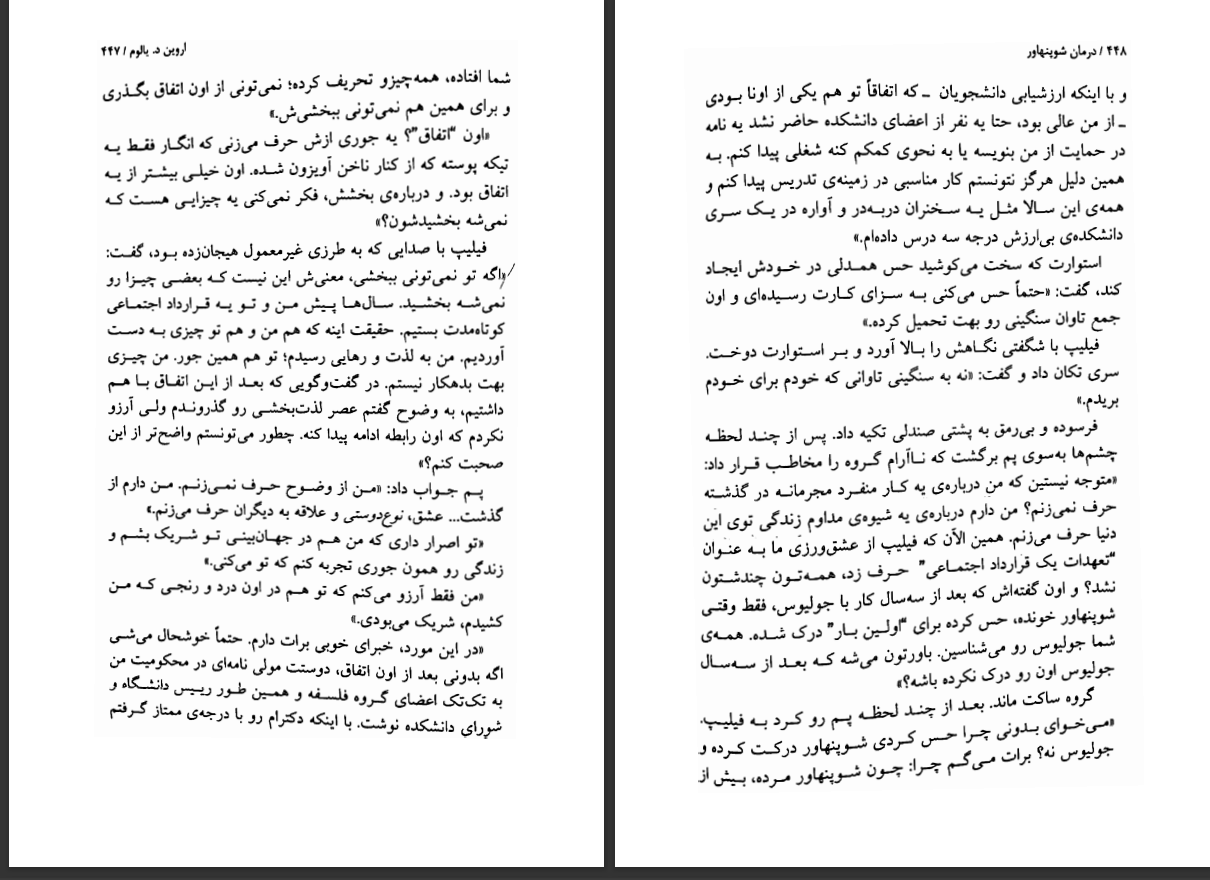 اروین د. یالوم / ۴۴۷
شما افتاده، همه‌چیزو تحریف کرده؛ نمی‌تونی از اون اتفاق بگذری
و برای همین هم نمی‌تونی ببخشی‌ش.»
«اون “اتفاق”؟ یه جوری ازش حرف می‌زنی که انگار فقط یه
تیکه پوسته که از کنار ناخن آویزون شده. اون خیلی بیشتر از یه
اتفاق بود. و درباره‌ی بخشش، فکر نمی‌کنی یه چیزایی هست که
نمی‌شه بخشیدشون؟»
فیلیپ با صدایی که به طرزی غیرمعمول هیجان‌زده بود، گفت:
«اگه تو نمی‌تونی ببخشی، معنی‌ش این نیست که بعضی چیزا رو
نمی‌شه بخشید. سال‌ها پیش من و تو یه قرارداد اجتماعی
کوتاه‌مدت بستیم. حقیقت اینه که هم من و هم تو چیزی به دست
آوردیم. من به لذت و رهایی رسیدم؛ تو هم همین جور. من چیزی
بهت بدهکار نیستم. در گفت‌وگویی که بعد از این اتفاق با هم
داشتیم، به وضوح گفتم عصر لذت‌بخشی رو گذروندم ولی آرزو
نکردم که اون رابطه ادامه پیدا کنه. چطور می‌تونستم واضح‌تر از این
صحبت کنم؟»
پم جواب داد: «من از وضوح حرف نمی‌زنم. من دارم از
گذشت... عشق، نوع‌دوستی و علاقه به دیگران حرف می‌زنم.»
«تو اصرار داری که من هم در جهان‌بینی تو شریک بشم و
زندگی رو همون جوری تجربه کنم که تو می‌کنی.»
«من فقط آرزو می‌کنم که تو هم در اون درد و رنجی که من
کشیدم، شریک می‌بودی.»
«در این مورد، خبرای خوبی برات دارم. حتماً خوشحال می‌شی
اگه بدونی بعد از اون اتفاق، دوستت مولی نامه‌ای در محکومیت من
به تک‌تک اعضای گروه فلسفه و همین طور رییس دانشگاه و
شورای دانشکده نوشت. با اینکه دکترام رو با درجه‌ی ممتاز گرفتم
۴۴۸ / درمان شوپنهاور
و با اینکه ارزشیابی دانشجویان ـ که اتفاقاً تو هم یکی از اونا بودی
ـ از من عالی بود، حتا یه نفر از اعضای دانشکده حاضر نشد یه نامه
در حمایت از من بنویسه یا به نحوی کمکم کنه شغلی پیدا کنم. به
همین دلیل هرگز نتونستم کار مناسبی در زمینه‌ی تدریس پیدا کنم و
همه‌ی این سالا مثل یه سخنران دربه‌در و آواره در یک سری
دانشکده‌ی بی‌ارزش درجه سه درس داده‌ام.»
استوارت که سخت می‌کوشید حس همدلی در خودش ایجاد
کند، گفت: «حتماً حس می‌کنی به سزای کارت رسیده‌ای و اون
جمع تاوان سنگینی رو بهت تحمیل کرده.»
فیلیپ با شگفتی نگاهش را بالا آورد و بر استوارت دوخت.
سری تکان داد و گفت: «نه به سنگینی تاوانی که خودم برای خودم
بریدم.»
فرسوده و بی‌رمق به پشتی صندلی تکیه داد. پس از چند لحظه
چشم‌ها به‌سوی پم برگشت که ناآرام گروه را مخاطب قرار داد:
«متوجه نیستین که من درباره‌ی یه کار منفرد مجرمانه در گذشته
حرف نمی‌زنم؟ من دارم درباره‌ی یه شیوه‌ی مداوم زندگی توی این
دنیا حرف می‌زنم. همین الآن که فیلیپ از عشق‌ورزی ما به عنوان
“تعهدات یک قرارداد اجتماعی” حرف زد، همه‌تون چندشتون
نشد؟ و اون گفته‌اش که بعد از سه‌سال کار با جولیوس، فقط وقتی
شوپنهاور خونده، حس کرده برای “اولین بار” درک شده. همه‌ی
شما جولیوس رو می‌شناسین. باورتون می‌شه که بعد از سه‌سال
جولیوس اون رو درک نکرده باشه؟»
گروه ساکت ماند. بعد از چند لحظه پم رو کرد به فیلیپ.
«می‌خوای بدونی چرا حس کردی شوپنهاور درکت کرده و
جولیوس نه؟ برات می‌گم چرا: چون شوپنهاور مرده، بیش از